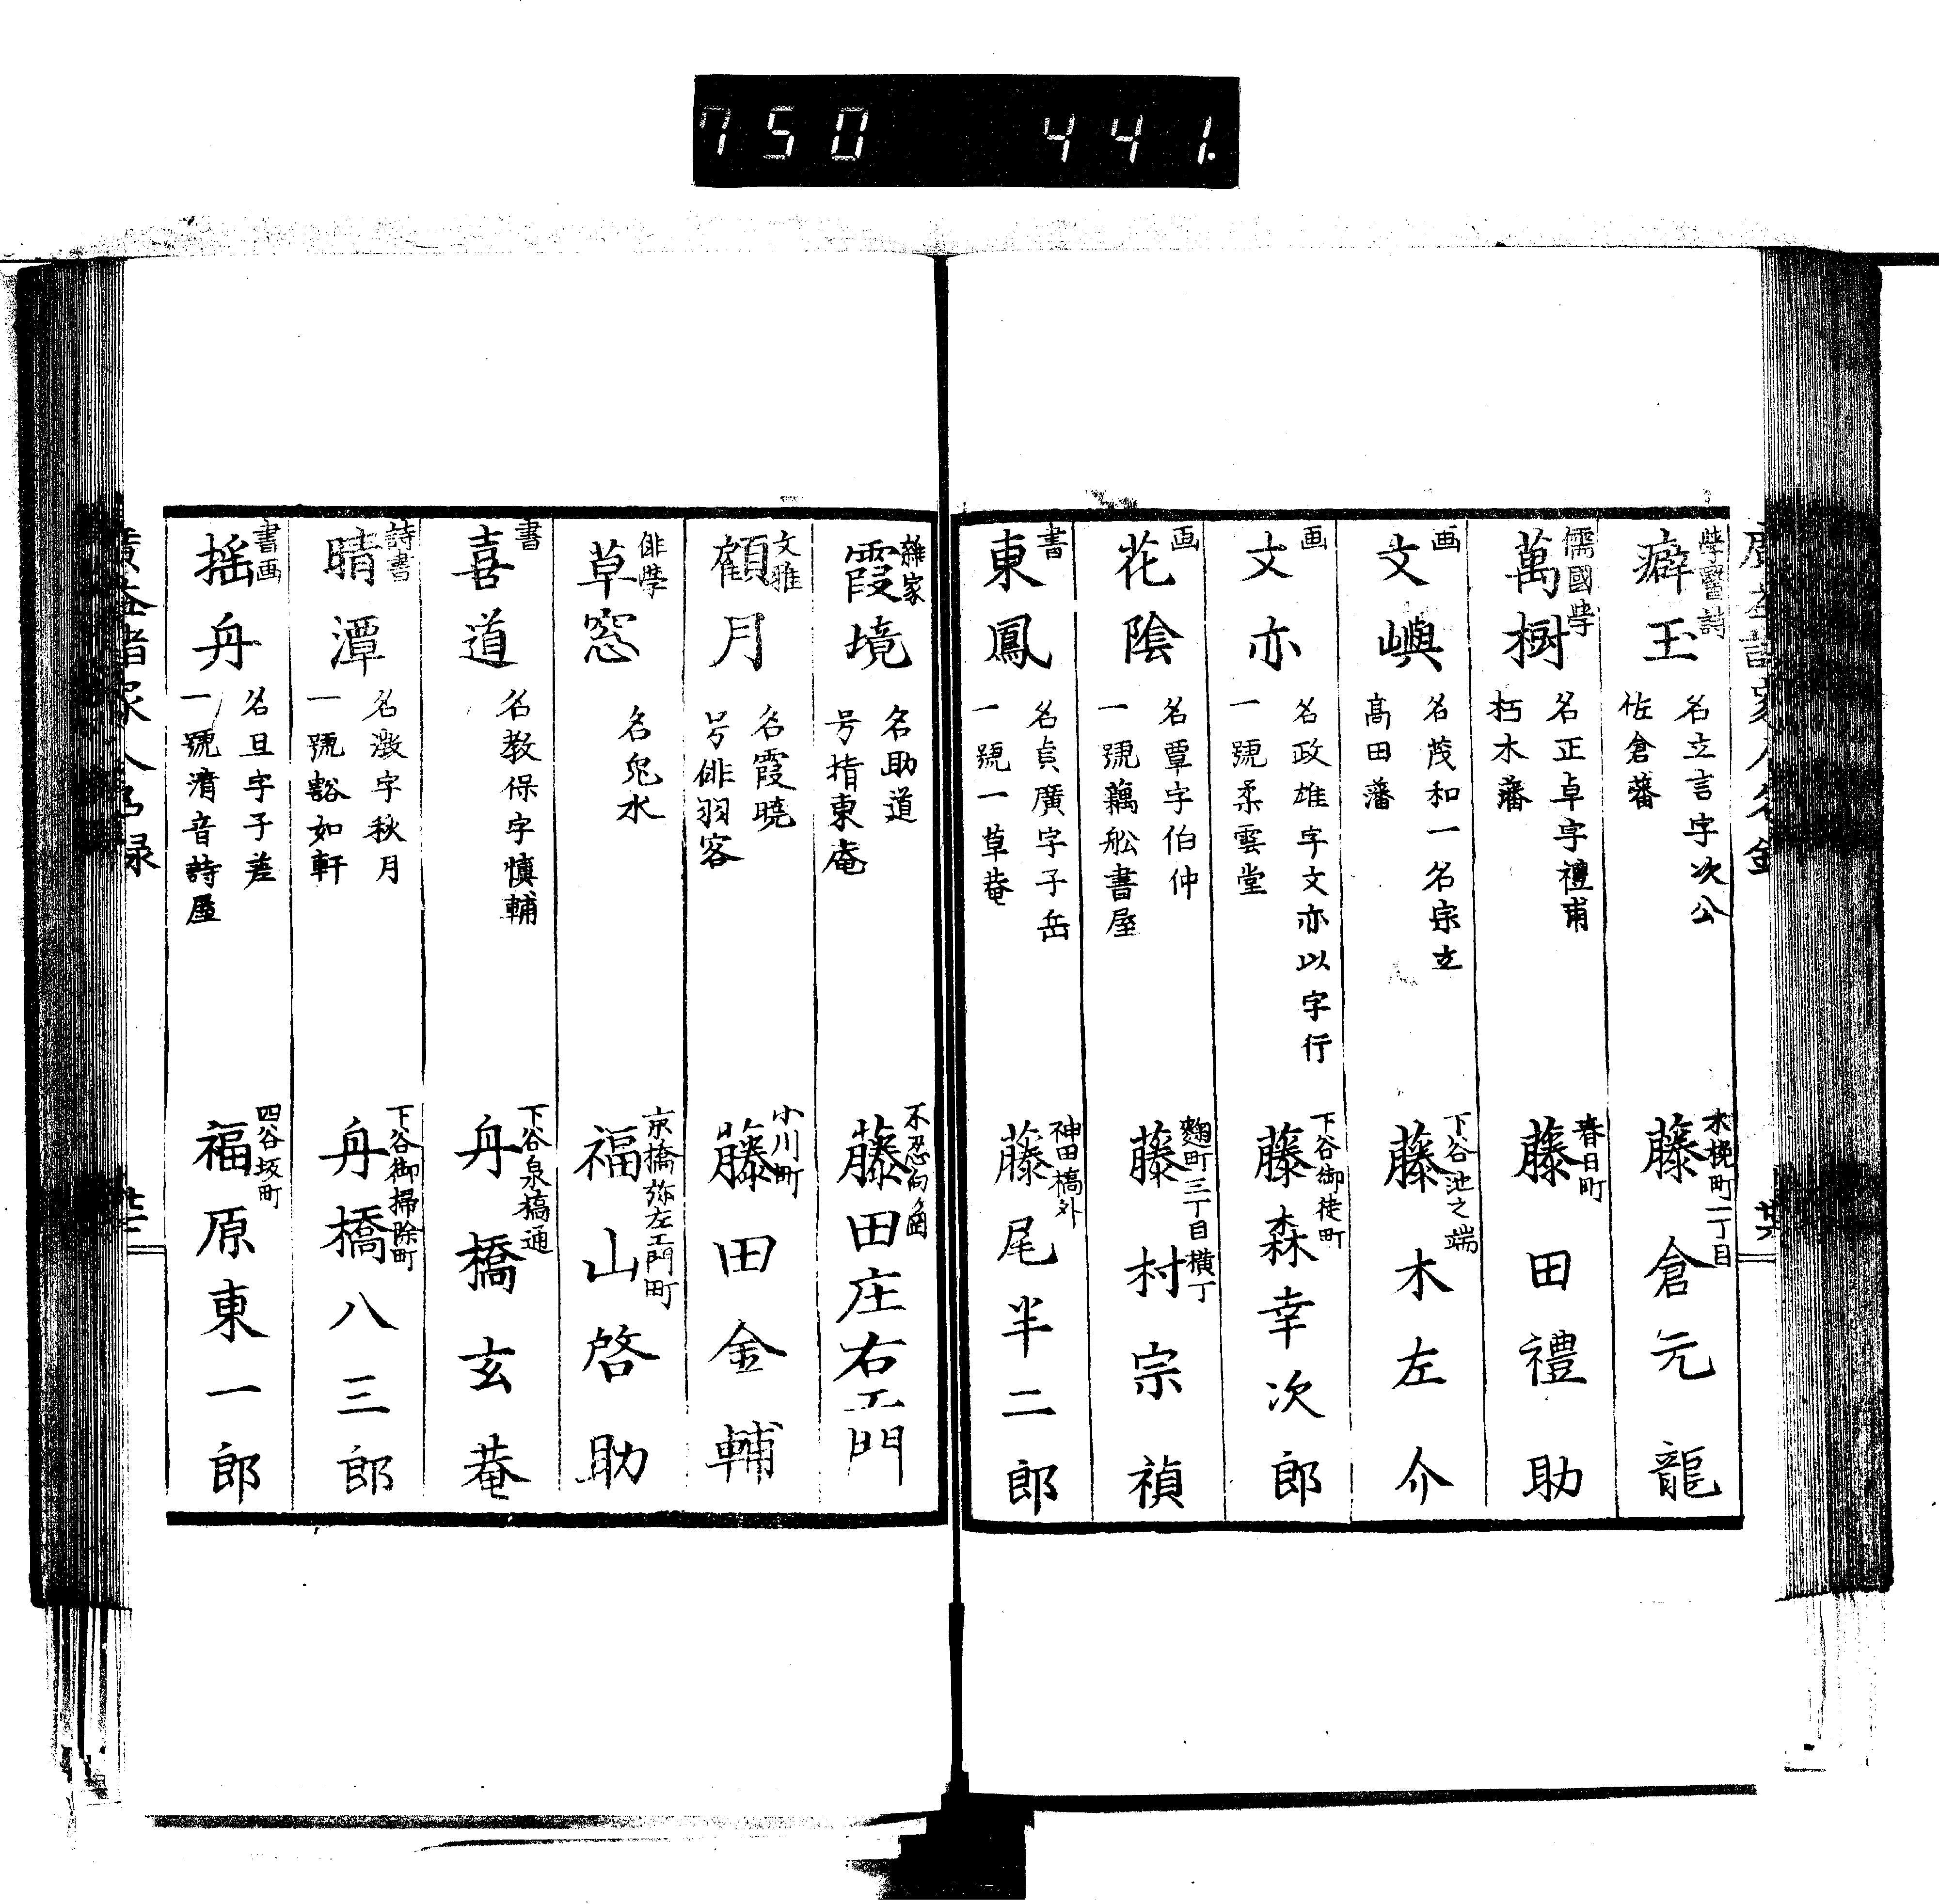 750 441.
學醫詩
癖玉
名立言字次公
佐倉藩
木挽町一丁目
藤倉元龍
儒國學
萬樹
名正卓字禮甫
朽木藩
春日町
藤田禮助
画
文嶼
名茂和一名宗立
高田藩
下谷池之端
藤木左介
画
文亦
名政雄字文亦以字行
一號柔雲堂
下谷御徒町
藤森幸次郎
画
花陰
名覃字伯仲
一號藕舩書屋
麹町三丁目横丁
藤村宗禎
書
東鳳
名貞廣字子岳
一號一草菴
神田橋外
藤尾半二郎
雜家
霞境
名助道
号指東庵
不忍向角
藤田庄右エ門
文雅
顧月
名霞曉
号俳羽客
小川町
藤田金輔
俳學
草窓
名鬼水
京橋弥左エ門町
福山啓助
書
喜道
名教保字慎輔
下谷泉橋通
舟橋玄菴
詩書
晴潭
名澂字秋月
一號豁如軒
下谷御掃除町
舟橋八三郎
書画
揺舟
名旦字子差
一號清音詩屋
四谷坂町
福原東一郎
廣益諸家人名録